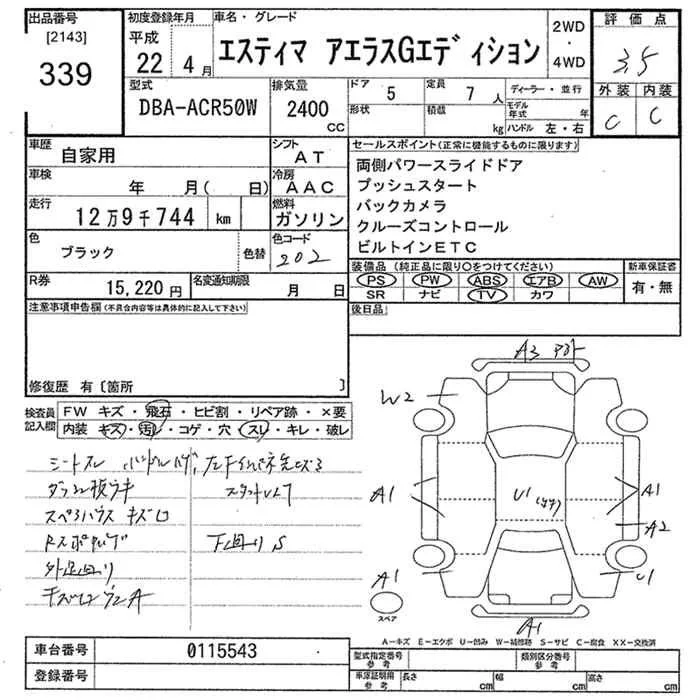 出品番号
[2143]
339
初度登録年月
平成
22 4月
車名・グレード
エスティマ アエラスGエディション
2WD
・
4WD
評価点
3.5
型式
DBA-ACR50W
排気量
2400
CC
ドア 5
形状
定員 7 人
積載 kg
ディーラー・並行
モデル年式 年
ハンドル 左・右
外装 内装
C C
車歴
自家用
シフト
AT
車検
年 月( 日)
冷房
AAC
走行
12万9千744 km
燃料
ガソリン
色
ブラック
色替
色コード
202
R券
15,220円
名変通知期限
月 日
セールスポイント(正常に機能するものに限ります)
両側パワースライドドア
プッシュスタート
バックカメラ
クルーズコントロール
ビルトインETC
装備品 (純正品に限り〇をつけてください)
PS PW ABS エアB AW
SR ナビ TV カワ
新車保証書
有・無
後日品
注意事項申告欄(不具合内容等は具体的に記入して下さい)
修復歴 有〔箇所 〕
検査員記入欄
FW キズ・飛石・ヒビ割・リペア跡・×要
内装 キズ・汚レ・コゲ・穴・スレ・キレ・破レ
シートスレ
スペアハウス キズ
下回り S
A3
W2
A1
U1
A1
A2
U1
A1
スペア
A1
A-キズ E-エクボ U-凹み W-補修跡 S-サビ C-腐食 XX-交換済
車台番号
0115543
登録番号
型式指定番号
参考
類別区分番号
参考
車庫証明用
参考
長さ cm
幅 cm
高さ cm